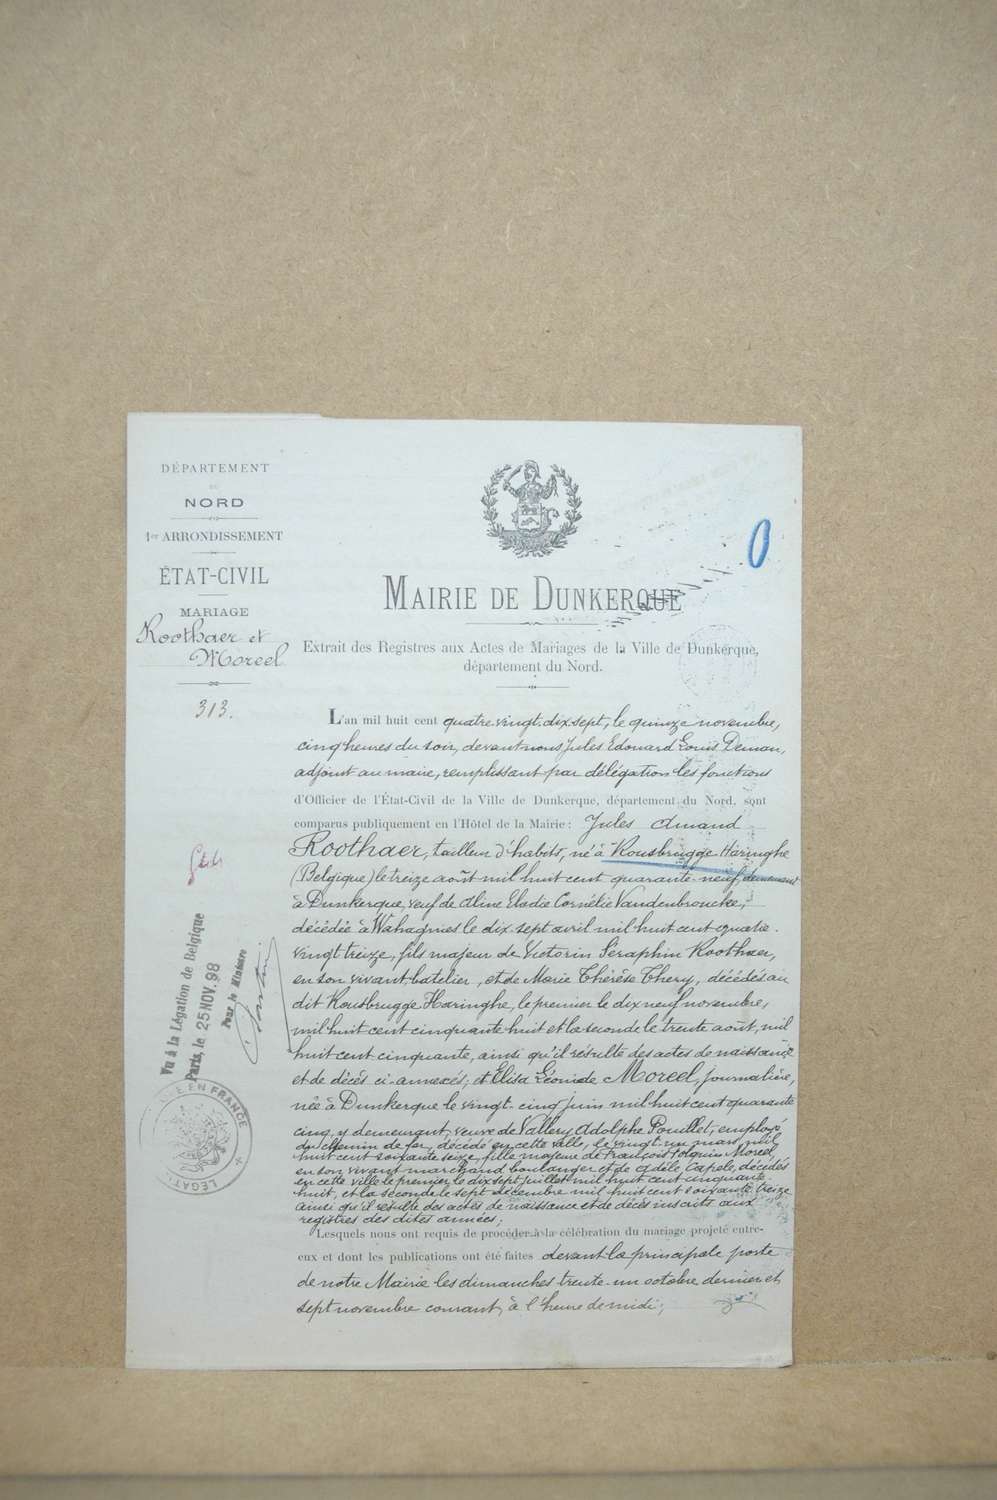 DÉPARTEMENT
DU
NORD
1er ARRONDISSEMENT
ÉTAT-CIVIL
MARIAGE
Roothaer et
Moreel
313.
O
MAIRIE DE DUNKERQUE
Extrait des Registres aux Actes de Mariages de la Ville de Dunkerque,
département du Nord.
L'an mil huit cent quatre-vingt-dix-sept, le quinze novembre,
cinq heures du soir, devant nous Jules Edouard Louis Deman,
adjoint au maire, remplissant par délégation les fonctions
d'Officier de l'État-Civil de la Ville de Dunkerque, département du Nord, sont
comparus publiquement en l'Hôtel de la Mairie : Jules Amand
Roothaer, tailleur d'habits, né à Rousbrugge-Haringhe
(Belgique) le treize août mil huit cent quarante-neuf, demeurant
à Dunkerque, veuf de Aline Elodie Cornélie Vandenbroucke,
décédée à Wahagnies le dix-sept avril mil huit cent quatre-
vingt treize, fils majeur de Victorin Séraphin Roothaer,
en son vivant batelier, et de Marie Thérèse Thery, décédés au
dit Rousbrugge Haringhe, le premier le dix neuf novembre,
mil huit cent cinquante huit et la seconde le trente août, mil
huit cent cinquante, ainsi qu'il résulte des actes de naissance
et de décès ci-annexés; et Elisa Léonide Moreel, journalière,
née à Dunkerque le vingt-cinq juin mil huit cent quarante
cinq, y demeurant, veuve de Vallery Adolphe Pouillet, employé
du chemin de fer, décédé en cette ville, le vingt-un mars mil
huit cent soixante seize, fille majeure de François Folquin Moreel,
en son vivant marchand boulanger et de Adèle Capele, décédés
en cette ville le premier le dix sept juillet mil huit cent cinquante-
huit, et la seconde le sept décembre mil huit cent soixante treize
ainsi qu'il résulte des actes de naissance et de décès inscrits aux
registres des dites années;
Lesquels nous ont requis de procéder à la célébration du mariage projeté entre-
eux et dont les publications ont été faites devant la principale porte
de notre Mairie les dimanches trente-un octobre dernier et
sept novembre courant, à l'heure de midi;
Vu à la Légation de Belgique
Paris, le 25 NOV. 98
Pour le Ministre
EN FRANCE
LÉGATI